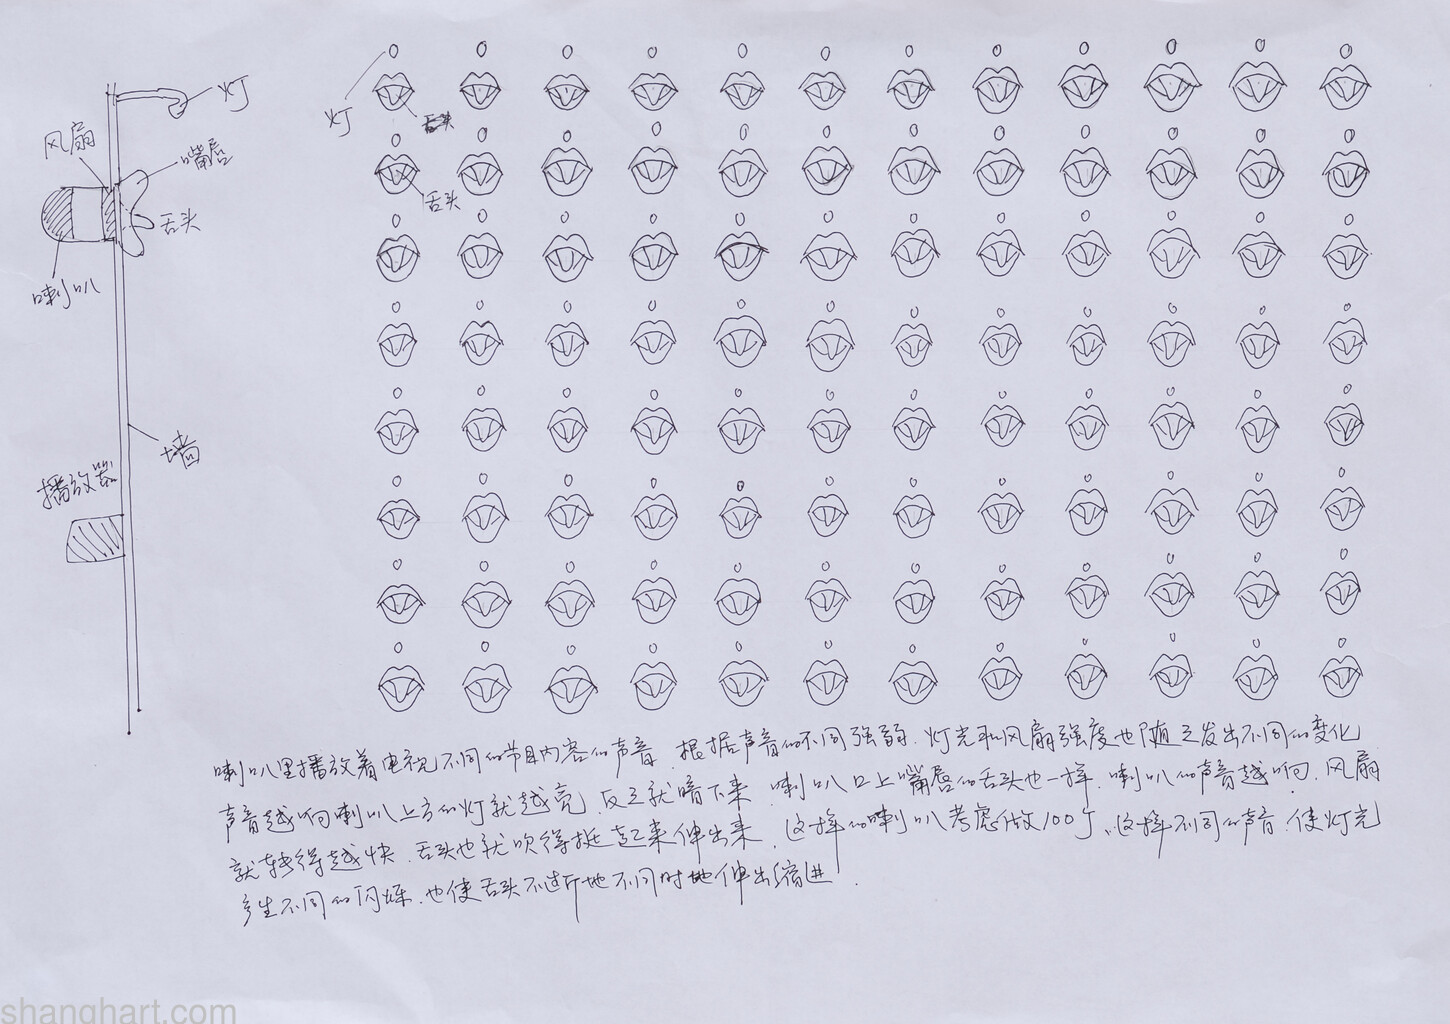 灯
风扇
嘴唇
舌头
喇叭
墙
播放器
灯
舌头
舌头
喇叭里播放着电视不同的节目内容的声音.根据声音的不同强弱.灯光和风扇强度也随之发出不同的变化
声音越响喇叭上方的灯就越亮.反之就暗下来.喇叭口上嘴唇的舌头也一样.喇叭的声音越响.风扇
就转得越快.舌头也就吹得挺起来伸出来.这样的喇叭考虑做100个、这样不同的声音.使灯光
产生不同的闪烁.也使舌头不断地不同时地伸出缩进.
shanghart.com